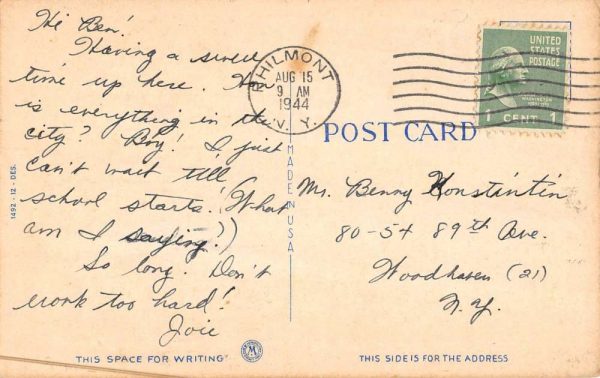 Hi Ben!
Having a swell
time up here. How
is everything in the
city? Boy! I just
can't wait till
school starts. (What
am I saying?)
So long. Don't
work too hard!
Joie
THIS SPACE FOR WRITING
1492-12-DES.
MADE IN USA
PHILMONT
AUG 15
9 AM
1944
N. Y.
UNITED
STATES
POSTAGE
WASHINGTON
1 CENT 1
POST CARD
Mr. Benny Konstintin
80-54 89th Ave.
Woodhaven (21)
N.Y.
THIS SIDE IS FOR THE ADDRESS